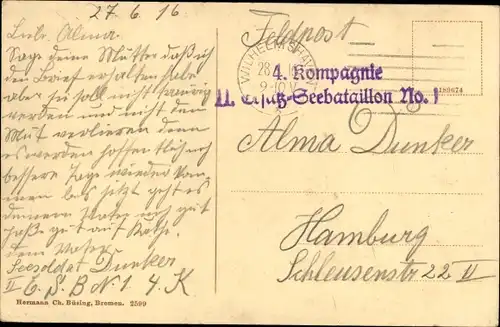 27.6.16
Lieb. Alma.
Sage deine Mutter daß ich
den Brief erhalten habe
aber sie soll nicht traurig
werden und nicht den
Mut verlieren denn
es werden hoffentlich
bessere Tage wieder kom-
men bis jetzt geht es
deinem Vater noch gut
paße gut auf Käthe.
dein Vater
Seesoldat Dunker
II E. S. B N. 1 4. K
Hermann Ch. Büsing, Bremen. 2599
Feldpost
WILHELMSHAVEN
28
9-10 V
4. Kompagnie
II. Ersatz-Seebataillon No. 1
Alma Dunker
Hamburg
Schleusenstr 22 II